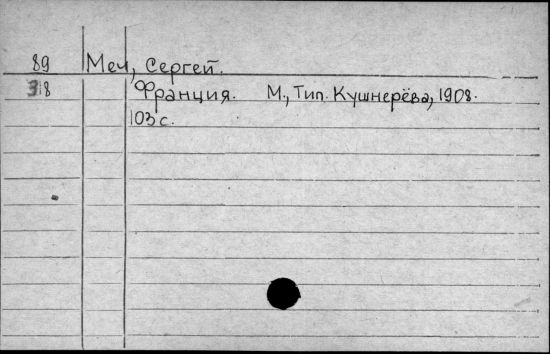 89 Меч, Сергей.
318 Франция. М., Тип. Кушнерёва, 1908.
103 с.